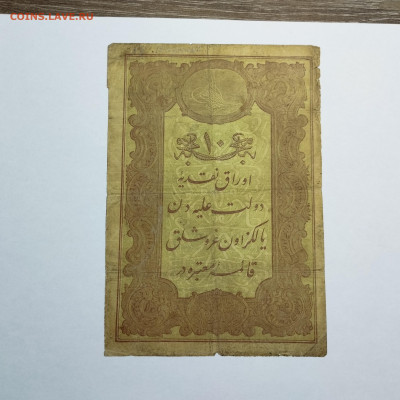 COINS.LAVE.RU
١٠
اوراق نقديه
دولت عليه دن
يالكز اون غروشلق
قائمهٔ معتبره در